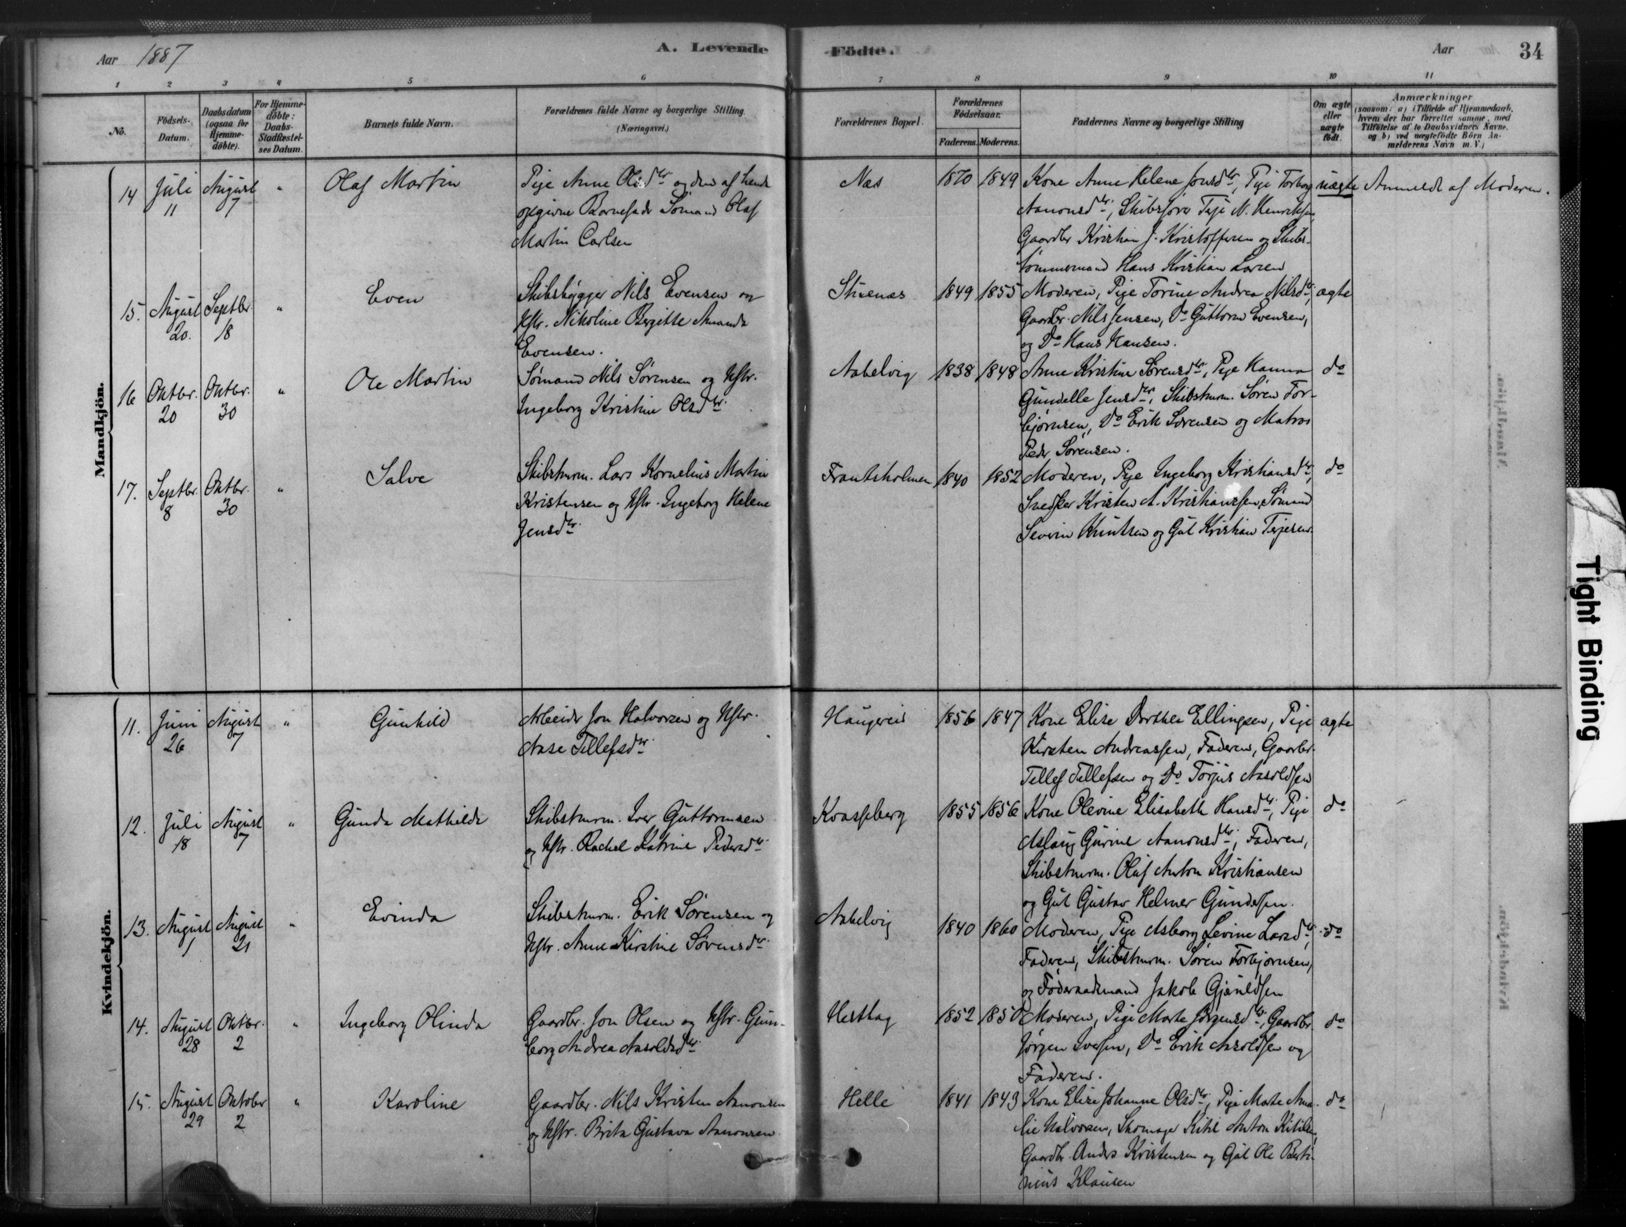 Aar 1887
A. Levende
Födte.
Aar
34
1 2 3 4 5 6 7 8 9 10 11
No.
Födsels-
Datum.
Daabsdatum
(ogsaa for
Hjemme-
döbte).
For Hjemme-
döbte:
Daabs-
Stadfæstel-
ses Datum.
Barnets fulde Navn.
Forældrenes fulde Navne og borgerlige Stilling
(Næringsvei.)
Forældrenes Bopæl.
Forældrenes
Födselsaar.
Faderens. Moderens.
Faddernes Navne og borgerlige Stilling
Om ægte
eller
uægte
født.
Anmærkninger
(saasom: a) i Tilfælde af Hjemmedaab,
hvem der har forrettet samme, med
Tilföielse af to Daabsvidners Navne,
og b) ved uægtefödte Börn An-
melderens Navn m. V.)
Mandkjön.
14 Juli 11 August 7 " Olaf Martin
Pige Anne Olsdtr og den af hende
opgivne Barnefader Sømand Olaf
Martin Carlsen
Næs 1870 1849
Kone Anne Helene Jonsdtr, Pige Torborg
Aanonsdtr, Skibsfører Terje N. Henriksen
Gaardbr Kristian J. Kristoffersen og Skibs-
tømmermand Hans Kristian Larsen
uægte Anmeldt af Moderen.
15. August 20. Septbr 18 " Even
Skibsbygger Nils Evensen og
Hstr. Nikoline Birgitte Amanda
Evensen.
Stuenæs 1849 1855
Moderen, Pige Torine Andrea Nilsdtr,
Gaardbr. Nils Jensen, Do Guttorm Evensen,
og Do Hans Hansen.
ægte
16 Oktbr. 20 Oktbr. 30 " Ole Martin
Sømand Nils Sørensen og Hstr.
Ingeborg Kristine Olsdtr.
Aabelvig 1838 1848
Anne Kristine Sørensdtr, Pige Hanna
Gunvelle Jensdtr, Skibstmrm. Søren Tor-
bjørnsen, Do Erik Sørensen og Matros
Peder Sørensen.
do
17. Septbr. 8 Oktbr. 30 " Salve
Skibstmrm. Lars Kornelius Martin
Kristensen og Hstr. Ingeborg Helene
Jensdtr
Frantsholmen 1840 1852
Moderen, Pige Ingeborg Kristiansdtr,
Snedker Kristen A. Kristianssen, Sømand
Severin Knutsen og Gut Kristian Terjesen.
do
Kvindekjön.
11. Juni 26 August 7 " Gunhild
Arbeider Jon Halvorsen og Hstr.
Aase Tellefsdtr
Haugereid 1856 1847
Kone Elise Dorthea Ellingsen, Pige
Kirsten Andreassen, Faderen, Gaardbr.
Tellef Tellefsen og Do Torjus Aaroldsen
ægte
12. Juli 18 August 7 " Gunda Mathilde
Skibstmrm. Iver Guttormsen
og Hstr. Rachel Katrine Pedersdtr.
Knapsberg 1855 1856
Kone Olevine Elisabeth Hansdtr, Pige
Aslaug Gurine Aanonsdtr, Faderen,
Skibstmrm. Oluf Anton Kristiansen
og Gut Gustav Helmer Gundersen.
do
13. August 1 August 21 " Evinda
Skibstmrm. Erik Sørensen og
Hstr. Anne Kirstine Sørensdtr.
Aabelvig 1840 1860
Moderen, Pige Asborg Levine Larsdtr,
Faderen, Skibstmrm. Søren Torbjørnsen,
og Føderaadsmand Jakob Gjeruldsen
do
14. August 28 Oktbr. 2 " Ingeborg Olinda
Gaardbr. Jon Olsen og Hstr. Gun-
borg Andrea Aaroldsdtr
Hesthag 1852 1850
Moderen, Pige Marte Jørgensdtr, Gaardbr.
Jørgen Iversen, Do Erik Aaroldsen og
Faderen.
do
15. August 29 Oktober 2 " Karoline
Gaardbr. Nils Kristen Aanonsen
og Hstr. Berta Gustava Aanonsen
Helle 1841 1843
Kone Elise Johanne Olsdtr, Pige Marte Ama-
lie Halvorsen, Skomager Kitil Anton Kitilsen,
Gaardbr. Anders Kristensen og Gut Ole Berti-
nius Klausen
do
Tight Binding